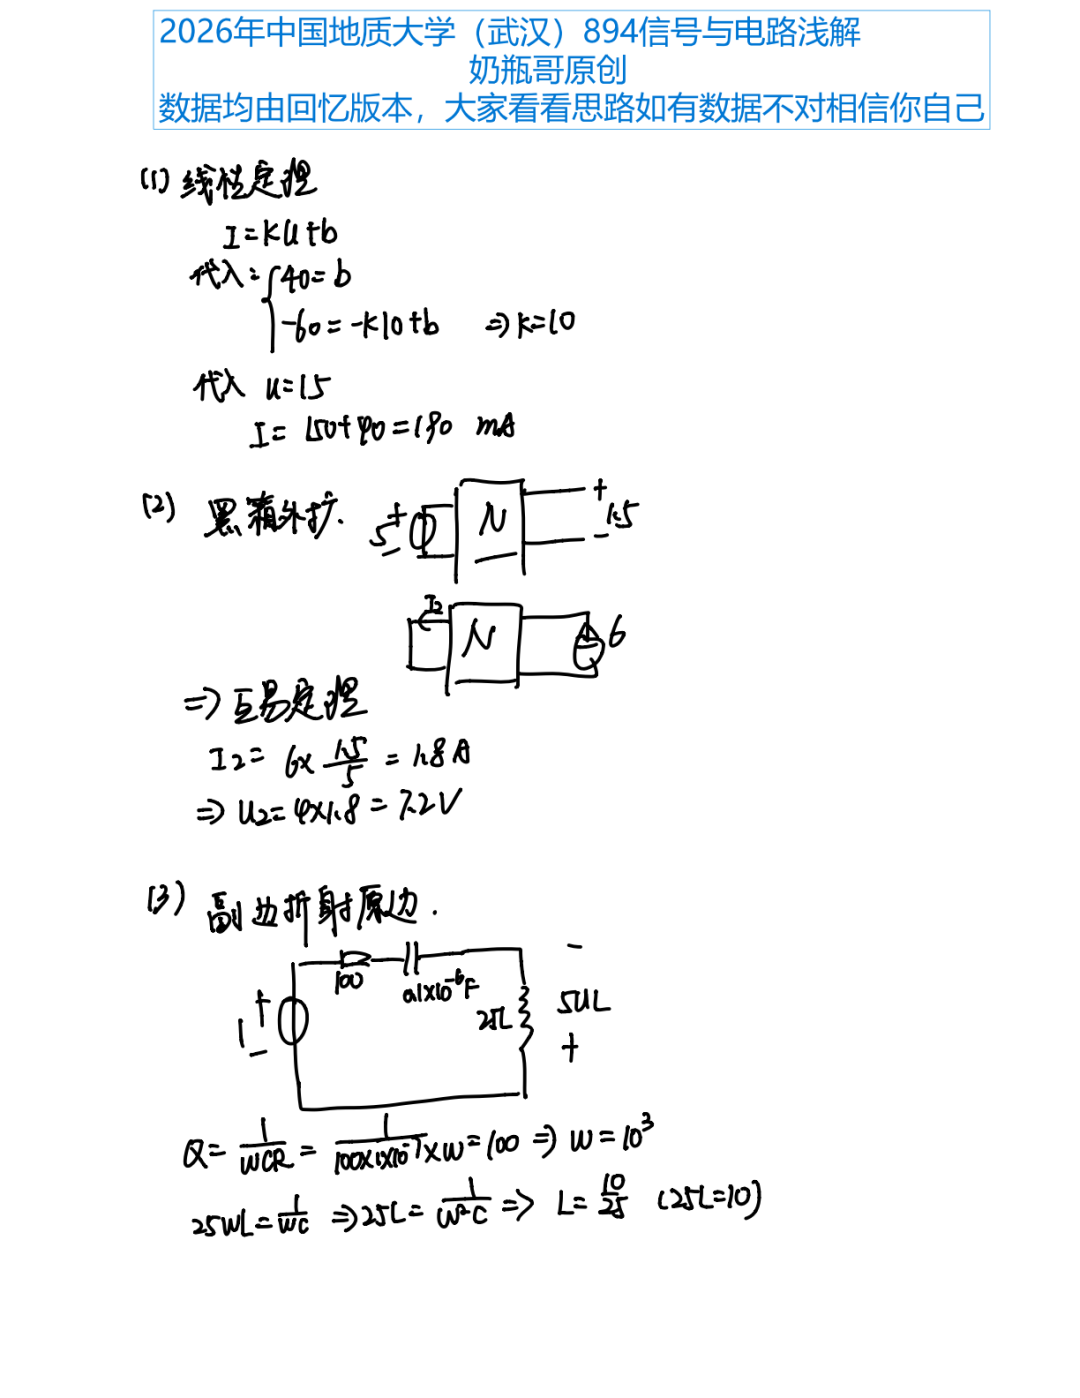 2026年中国地质大学（武汉）894信号与电路浅解
奶瓶哥原创
数据均由回忆版本，大家看看思路如有数据不对相信你自己
(1) 线性定理
I=KU+b
代入: 40=b
-60=-K10+b ⇒K=10
代入 U=15
I= 150+40=190 mA
(2) 黑箱外扩.
5 + - N + 1.5 -
I2 N 6
⇒ 互易定理
I2= 6× 1.5/5 = 1.8A
⇒ U2=4×1.8=7.2V
(3) 副边折射原边.
100 0.1×10⁻⁶F -
1 + - 25L 5UL
+
Q= 1/WCR = 1/100×1×10⁻⁷×W =100 ⇒ W=10³
25WL= 1/WC ⇒25L= 1/W²C ⇒ L= 10/25 (25L=10)